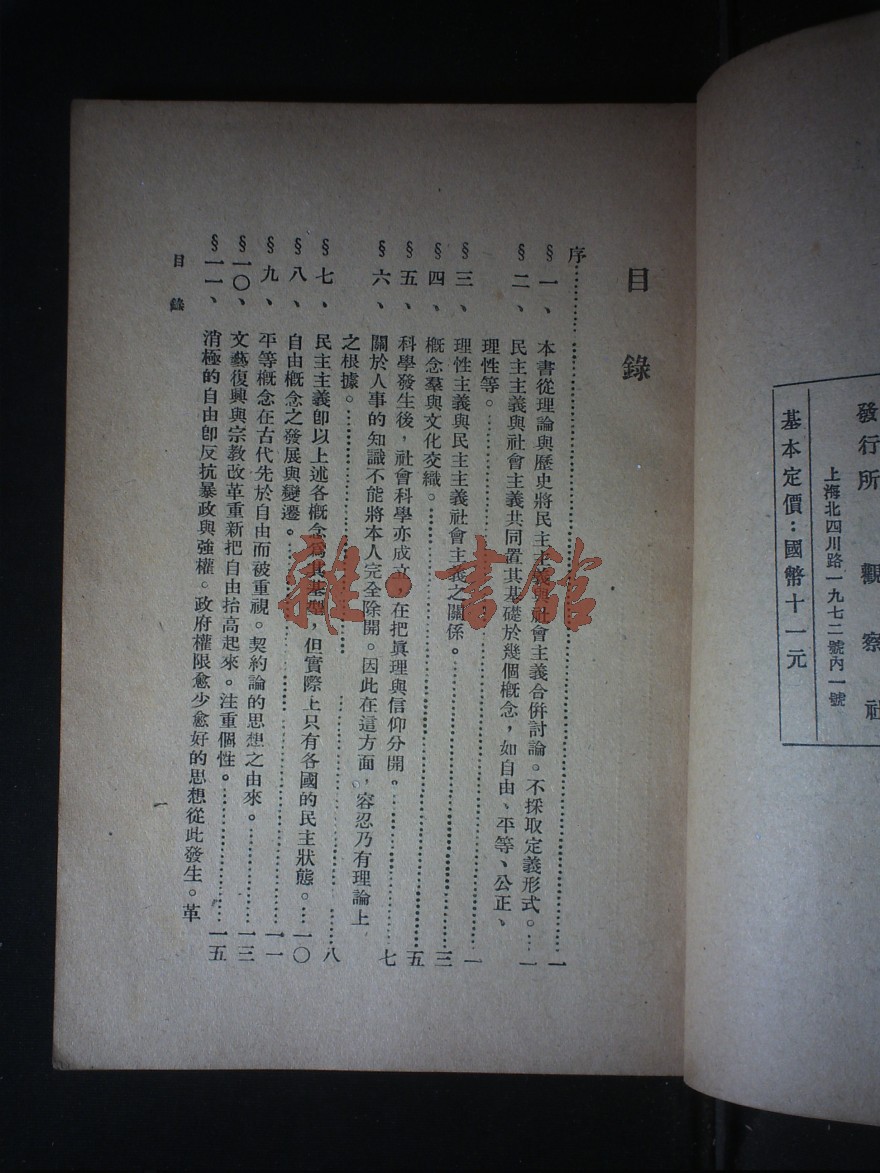 發行所 觀察社
上海北四川路一九七二號內一號
基本定價：國幣十一元
目錄
序……一
§一、本書從理論與歷史將民主主義與社會主義合併討論。不採取定義形式。…一
§二、民主主義與社會主義共同置其基礎於幾個概念，如自由、平等、公正、
理性等。……一
§三、理性主義與民主主義社會主義之關係。……三
§四、概念羣與文化交織。……五
§五、科學發生後，社會科學亦成立，在把眞理與信仰分開。……七
§六、關於人事的知識不能將本人完全除開。因此在這方面，容忍乃有理論上
之根據。……八
§七、民主主義卽以上述各概念爲其基型，但實際上只有各國的民主狀態。…一〇
§八、自由概念之發展與變遷。……一一
§九、平等概念在古代先於自由而被重視。契約論的思想之由來。……一三
§一〇、文藝復興與宗教改革重新把自由抬高起來。注重個性。……一五
§一一、消極的自由卽反抗暴政與強權。政府權限愈少愈好的思想從此發生。革
目錄
一
雜·書館